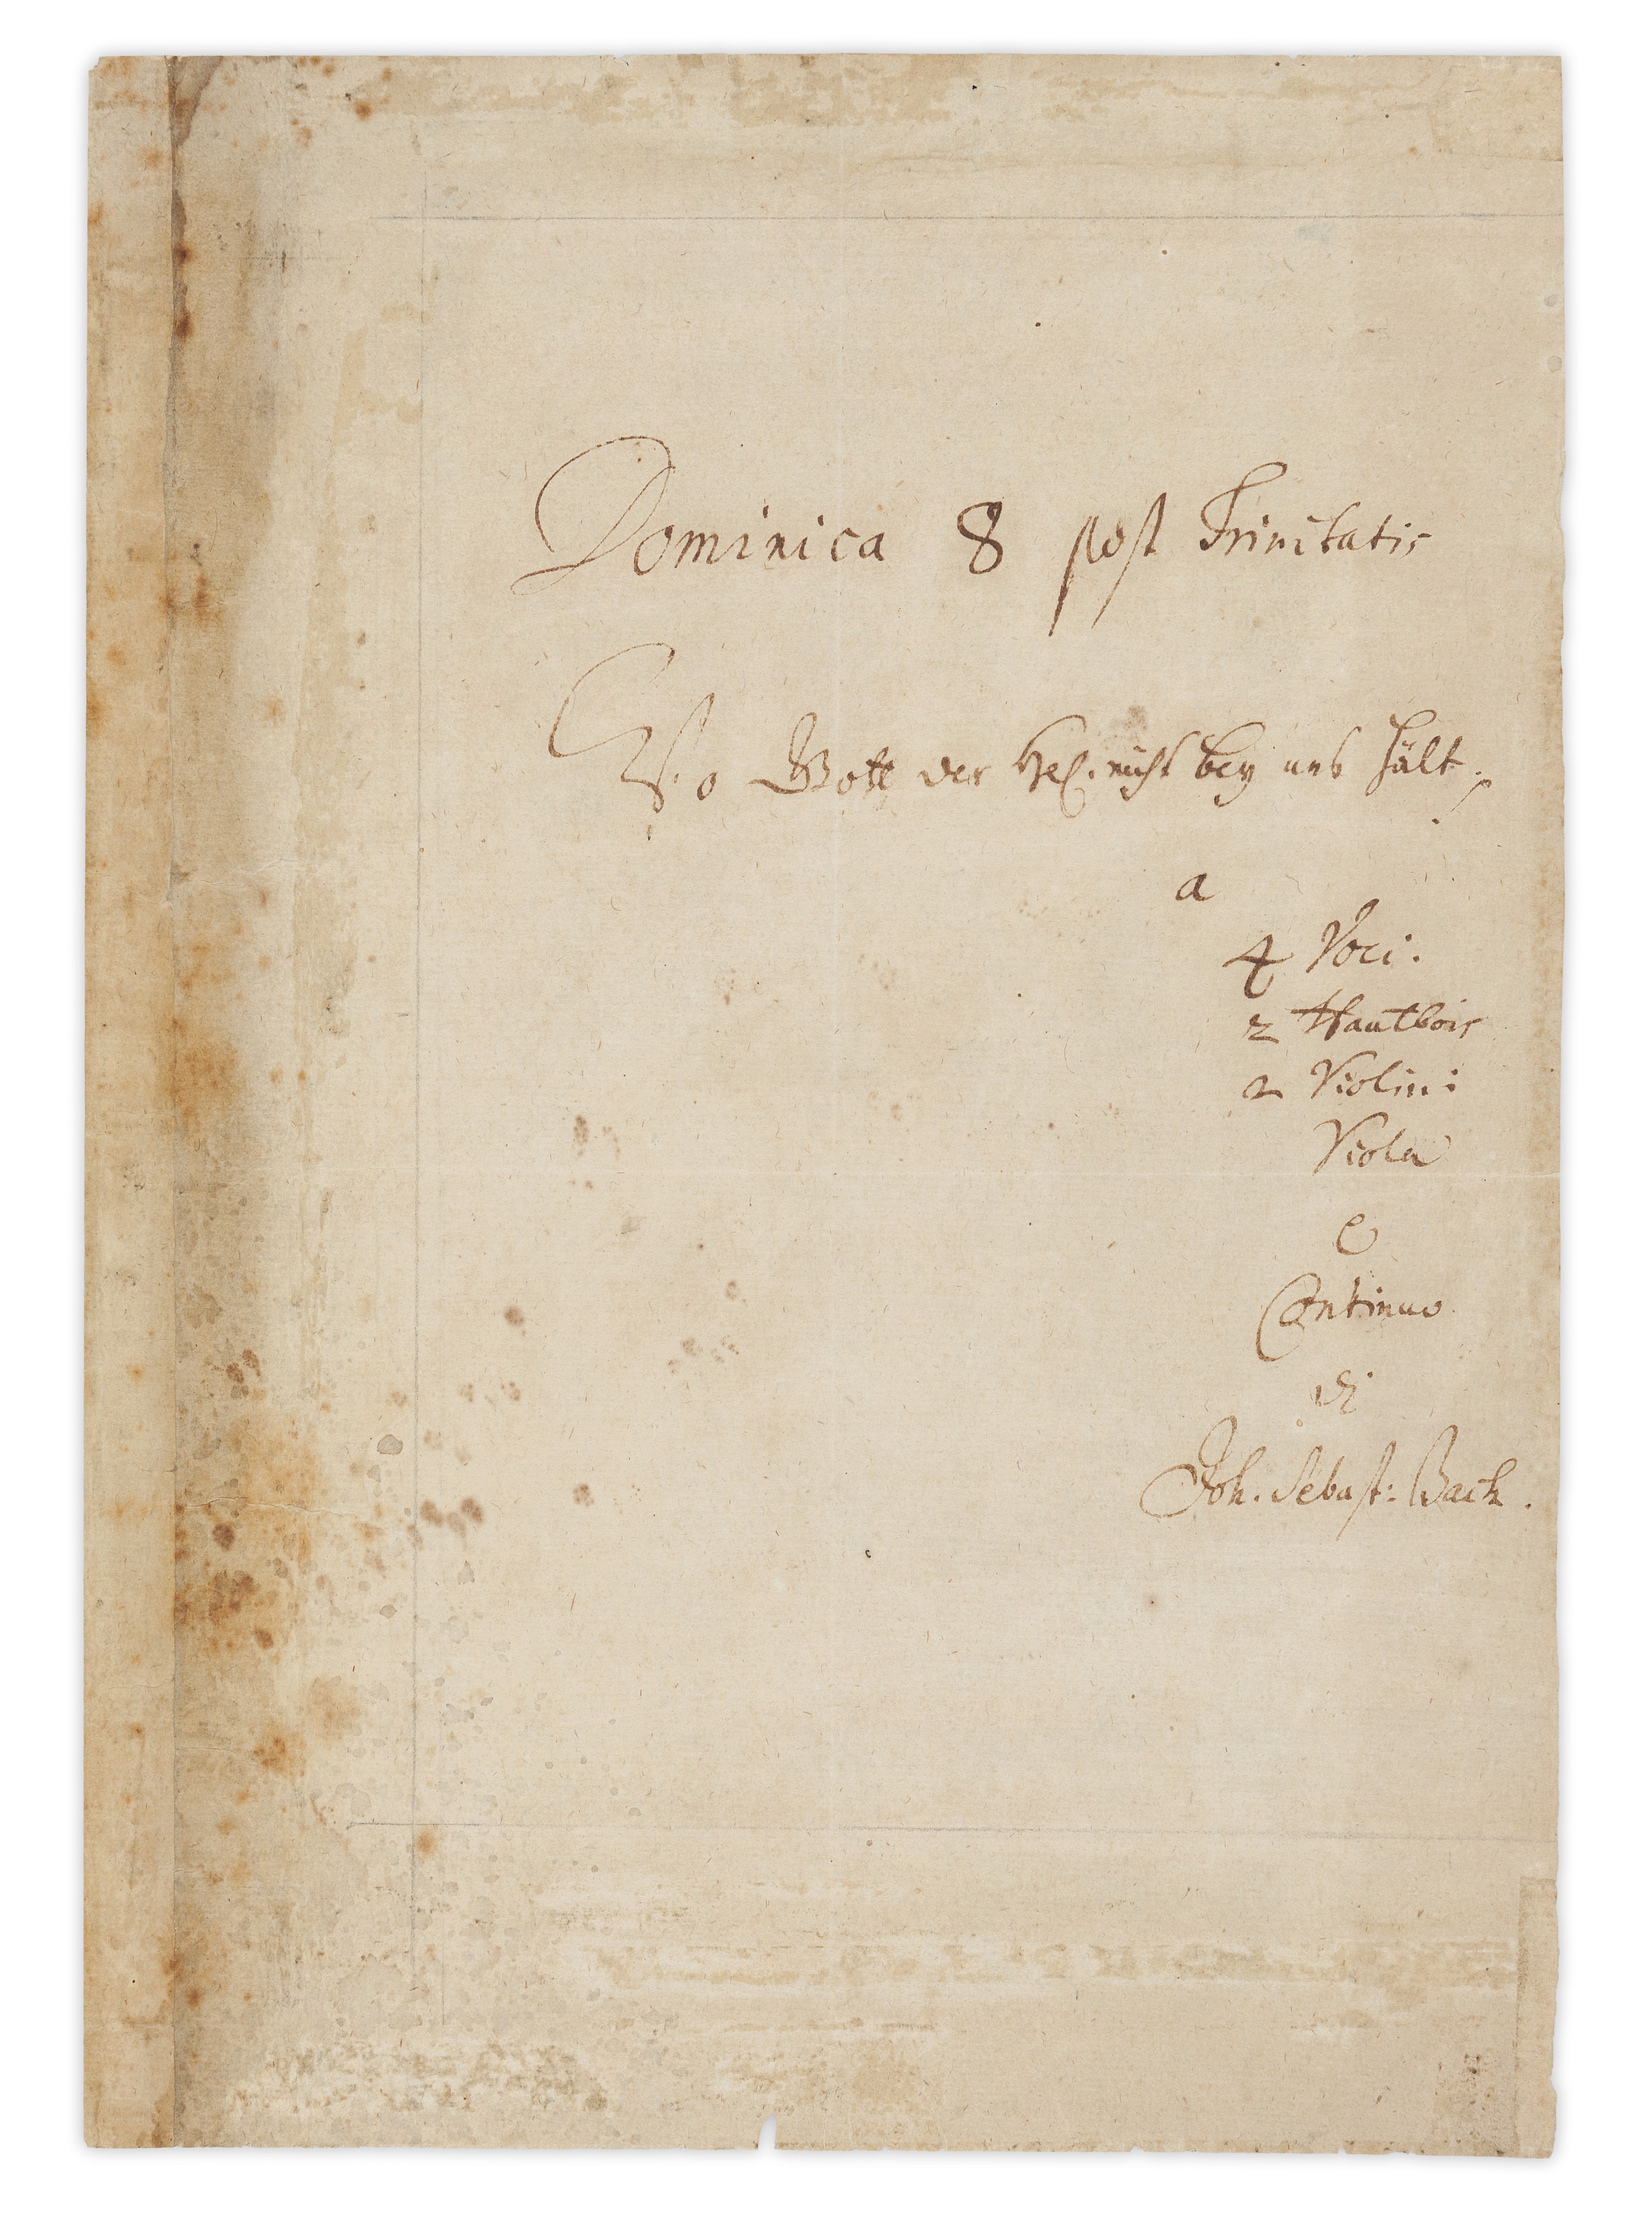 Dominica 8 post Trinitatis
Wo Gott der Her. nicht bey uns hält.
a
4 Voci.
2 Hautbois
2 Violini
Viola
e
Continuo
di
Joh. Sebast: Bach.